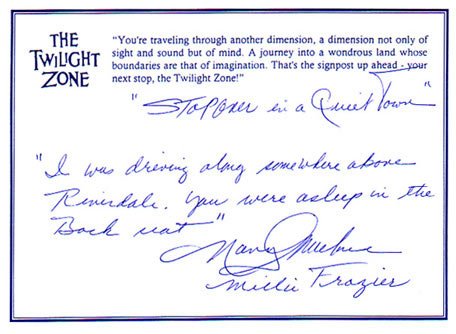 THE
TWILIGHT
ZONE
"You're traveling through another dimension, a dimension not only of
sight and sound but of mind. A journey into a wondrous land whose
boundaries are that of imagination. That's the signpost up ahead - your
next stop, the Twilight Zone!"
"Stopover in a Quiet Town"
"I was driving along somewhere above
Riverdale. You were asleep in the
Back seat"
Nancy
Millie Frazier